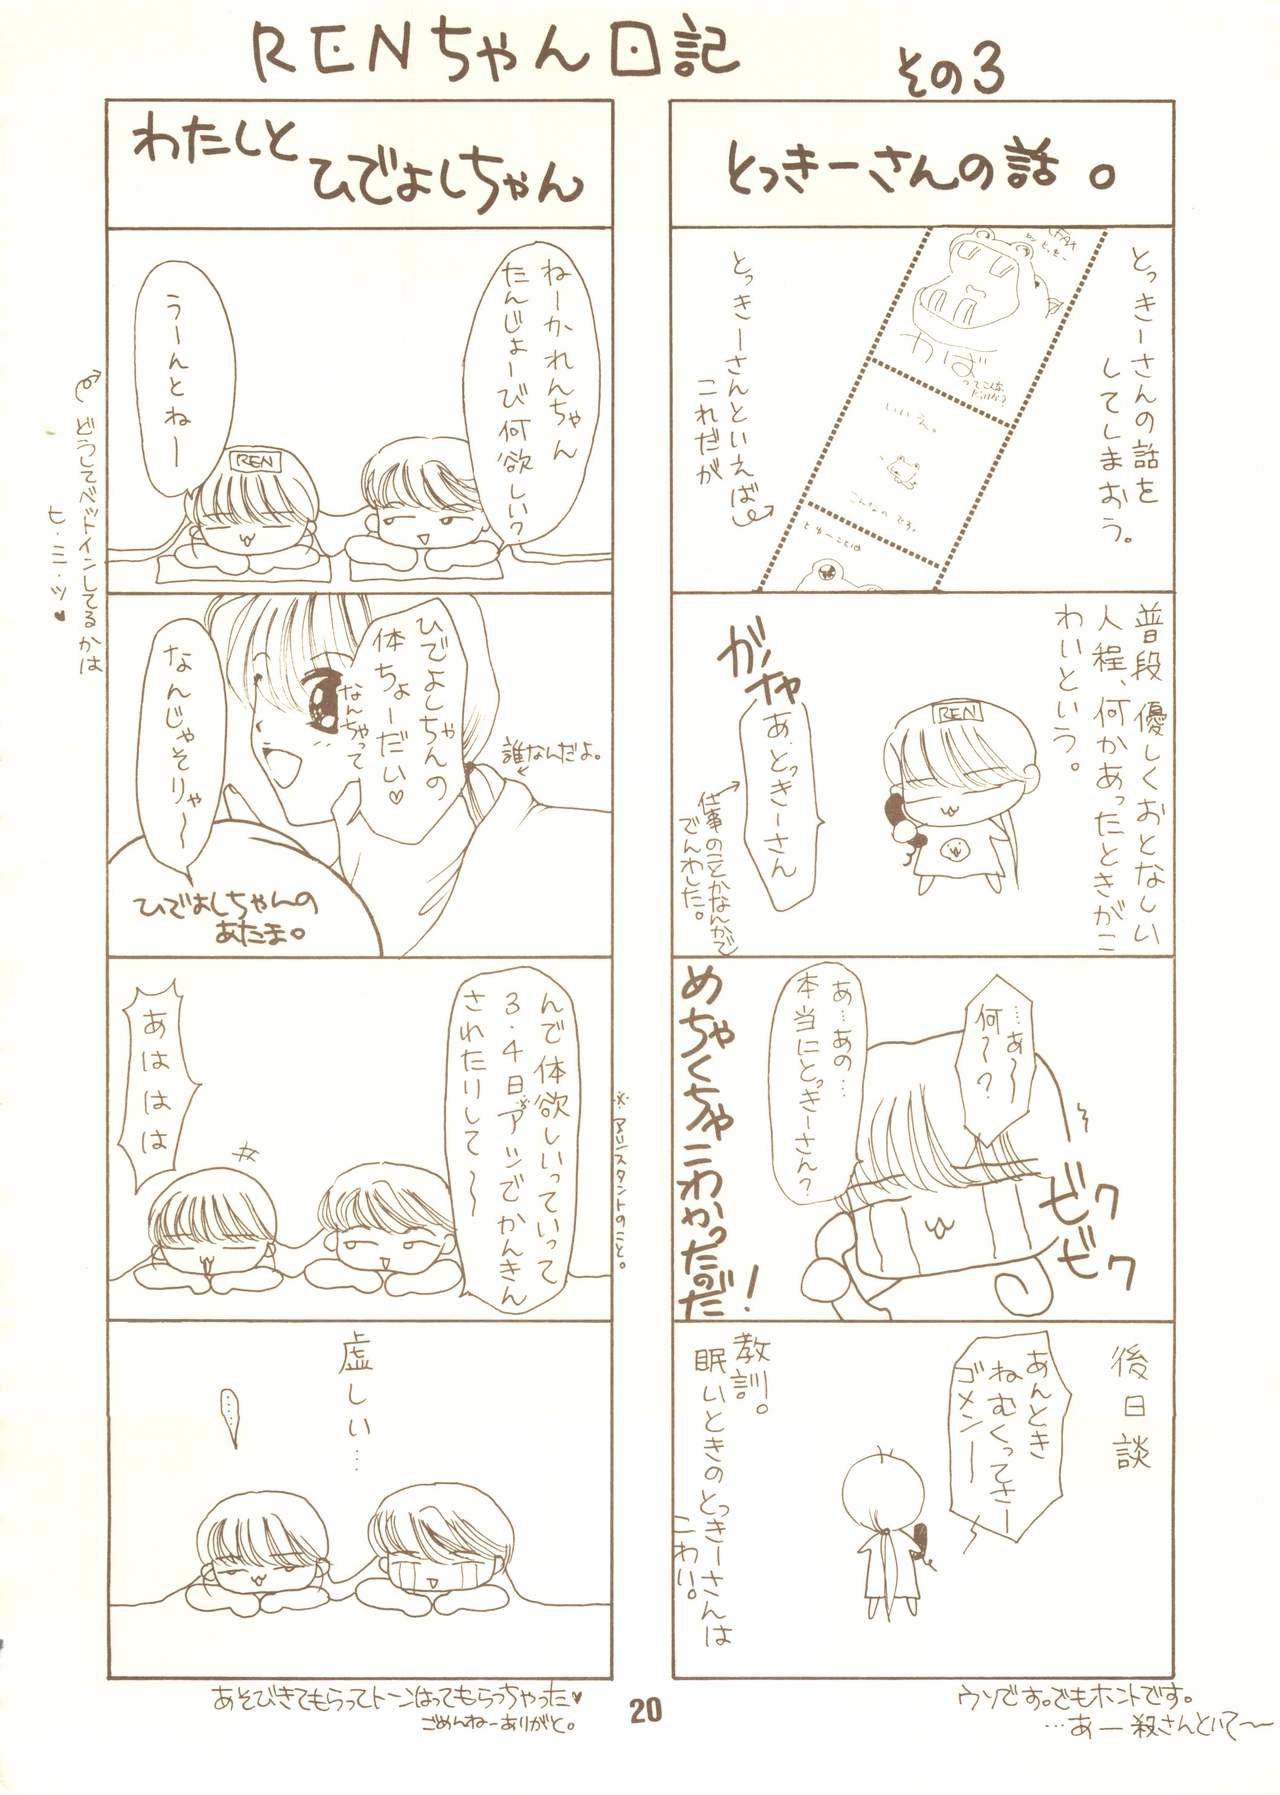 RENちゃん日記
その3
とっきーさんの話。
とっきーさんの話を
してしまおう。
とっきーさんといえば
これだが
FAX
by とっきー
かば
いいえ。
こんなの です。
普段 優しくおとなしい
人程、何かあったときがこ
わいという。
REN
ガチャ
あ、とっきーさん
仕事のことかなんかで
でんわした。
…あ〜
何〜?
あ…あの…
本当にとっきーさん?
ビク
ビク
めちゃくちゃこわかったのだ!
後日談
あんとき
ねむくってさー
ゴメンー
教訓。
眠いときのとっきーさんは
こわい。
ウソです。でもホントです。
…あー 殺さんといて〜
わたしと
ひでよしちゃん
ねーかれんちゃん
たんじょーび何欲しい?
うーんとねー
REN
どうしてベットインしてるかは
ヒ・ミ・ツ♥
ひでよしちゃんの
体ちょーだい♡
なんちゃって
誰なんだよ。
なんじゃそりゃ〜
ひでよしちゃんの
あたま。
んで体欲しいっていって
3.4日アシ※でかんきん
されたりして〜
※アシスタントのこと。
あははは
虚しい…
……
あそびきてもらってトーンはってもらっちゃった♥
ごめんねーありがと。
20